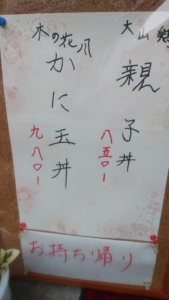 大山
親子丼
八五〇ー
木の花
かに玉丼
九八〇ー
お持ち帰り